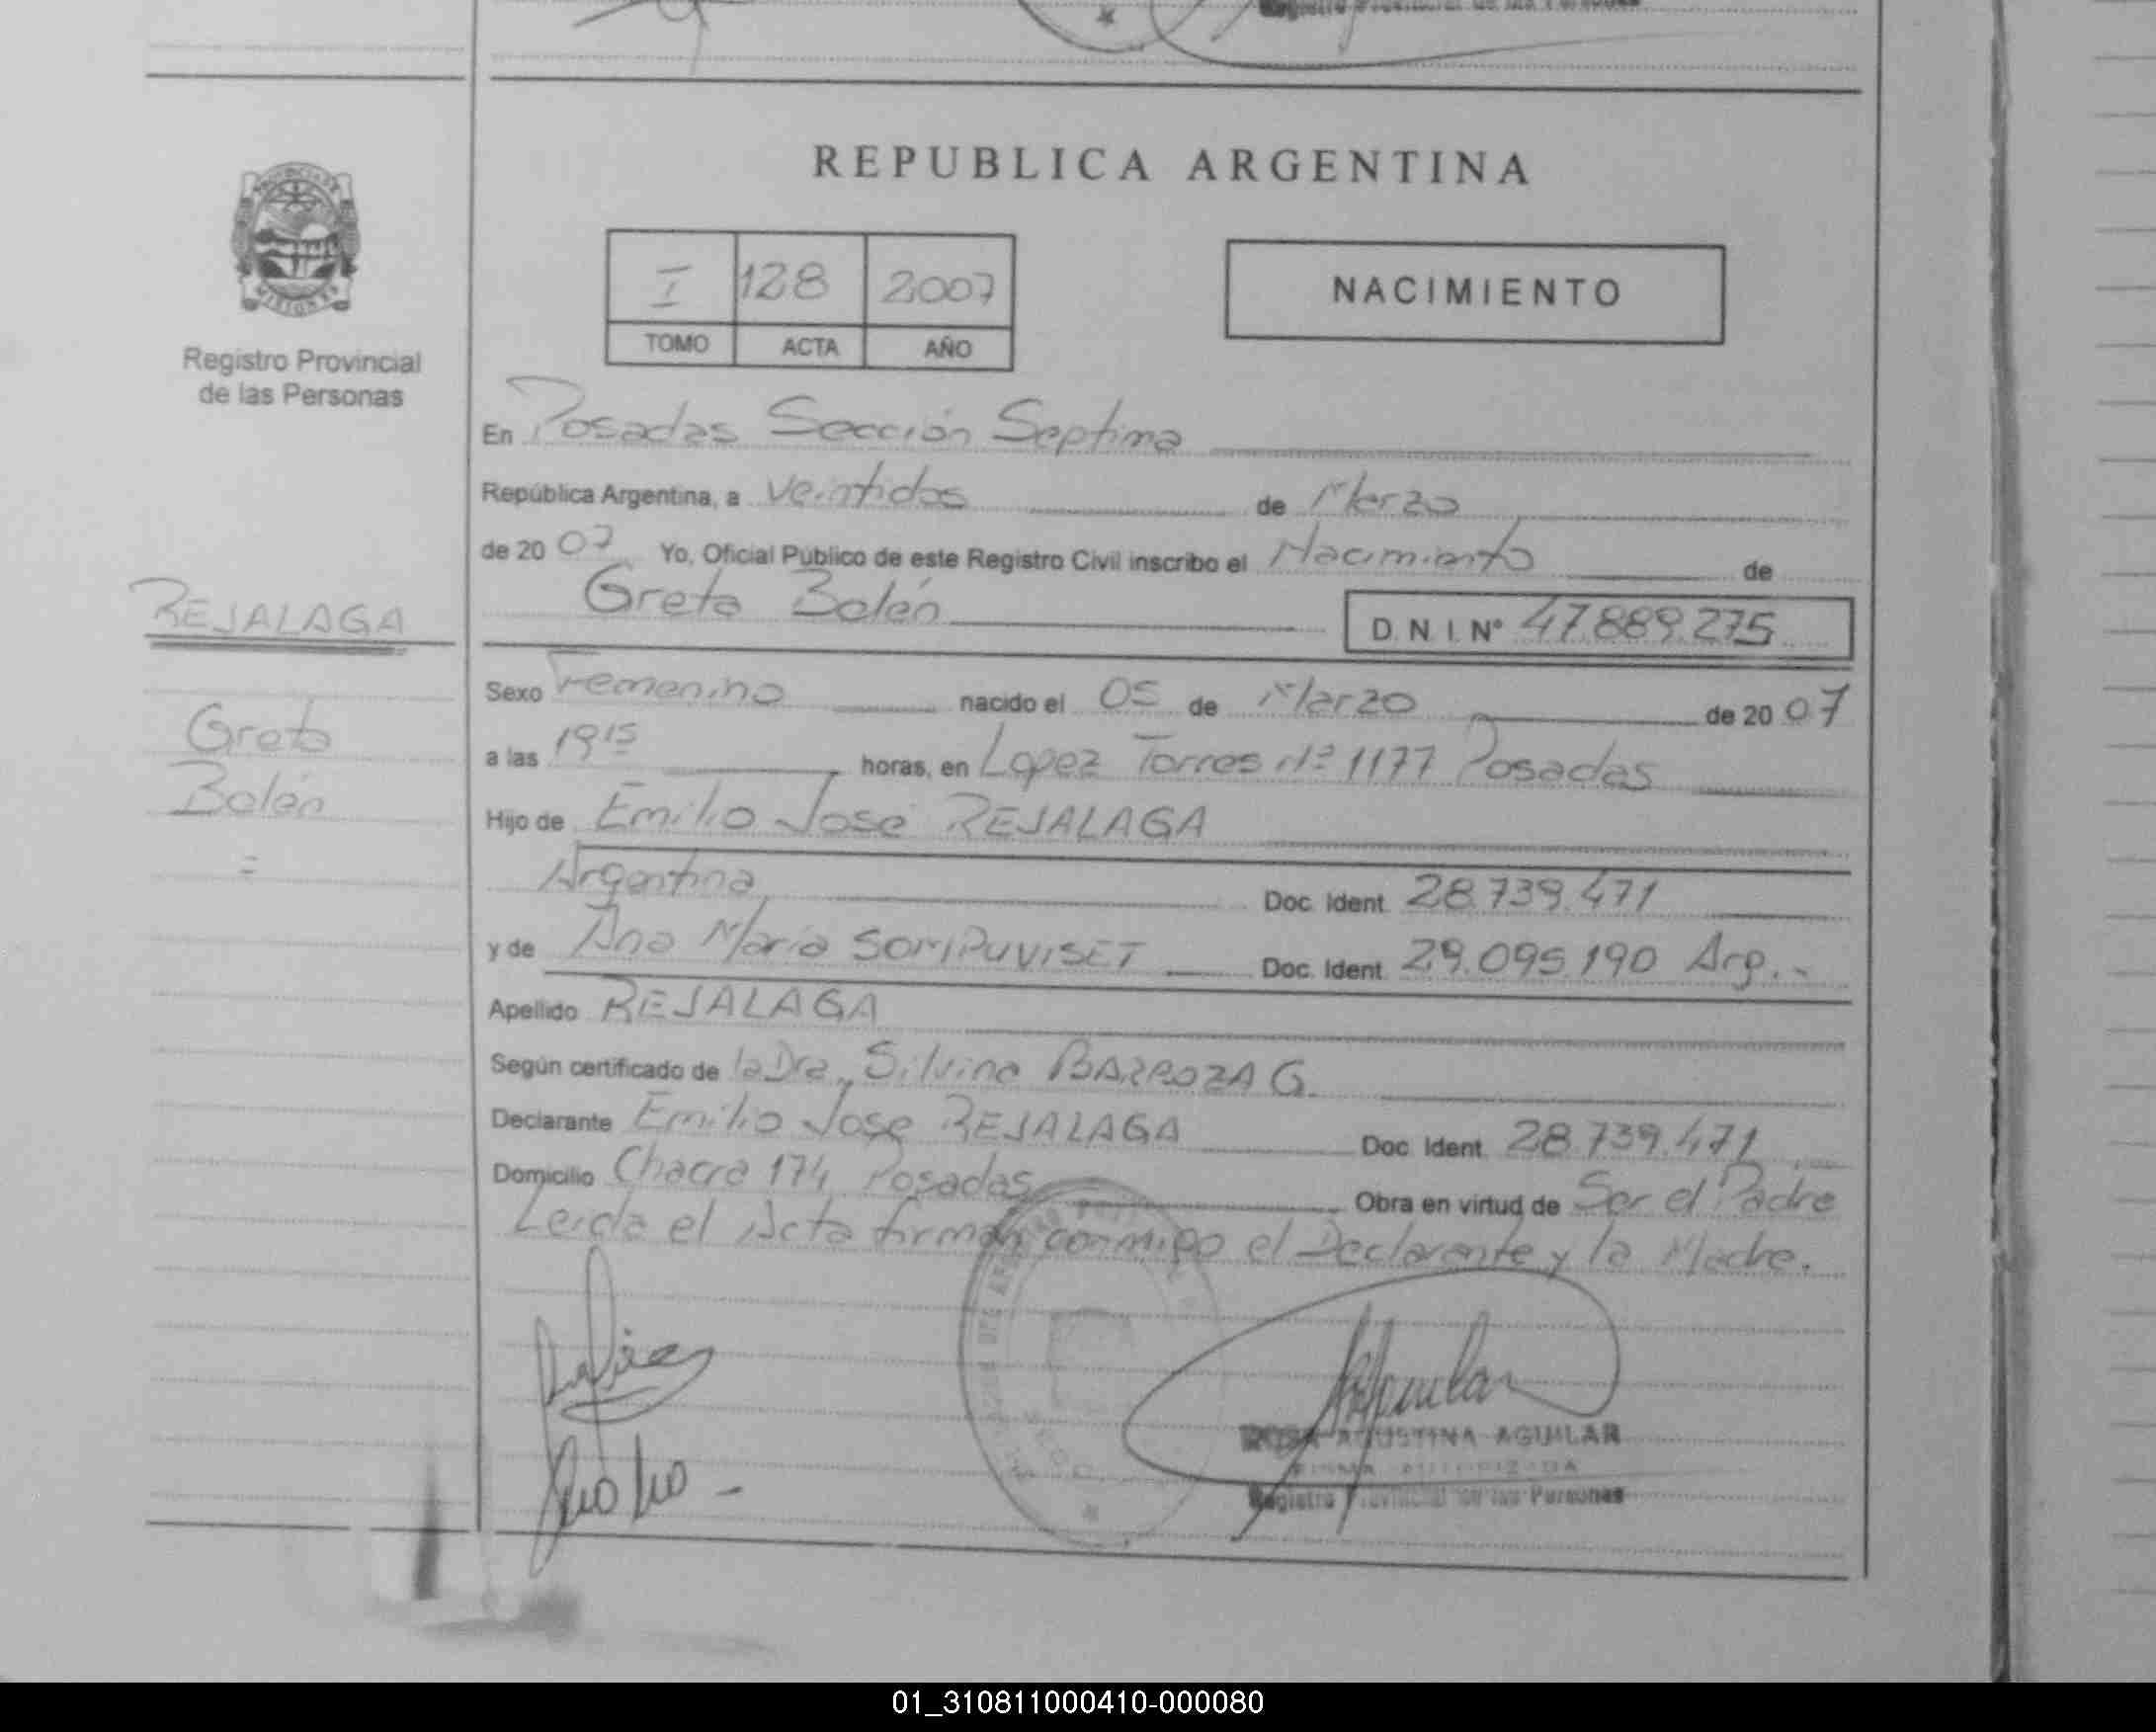 Registro Provincial de las Personas
REPUBLICA ARGENTINA
I 128 2007
TOMO ACTA AÑO
NACIMIENTO
Registro Provincial
de las Personas
En Posadas Sección Septima
República Argentina, a Veintidos de Marzo
de 20 07 Yo, Oficial Público de este Registro Civil inscribo el Nacimiento de
Greta Belén D.N.I. Nº 47.889.275
REJALAGA
Greta
Belén
=
Sexo Femenino nacido el 05 de Marzo de 20 07
a las 19 15 horas, en Lopez Torres nº 1177 Posadas
Hijo de Emilio José REJALAGA
Argentina Doc. Ident. 28.739.471
y de Ana María SOMPUVISET Doc. Ident. 29.095.190 Arg.-
Apellido REJALAGA
Según certificado de la Dra. Silvina BARROZA G.
Declarante Emilio José REJALAGA Doc. Ident. 28.739.471
Domicilio Chacra 174 Posadas Obra en virtud de Ser el Padre
Leida el Acta firman conmigo el Declarante y la Madre.
Aguilar
ROSA AGUSTINA AGUILAR
FIRMA AUTORIZADA
Registro Provincial de las Personas
01_310811000410-000080